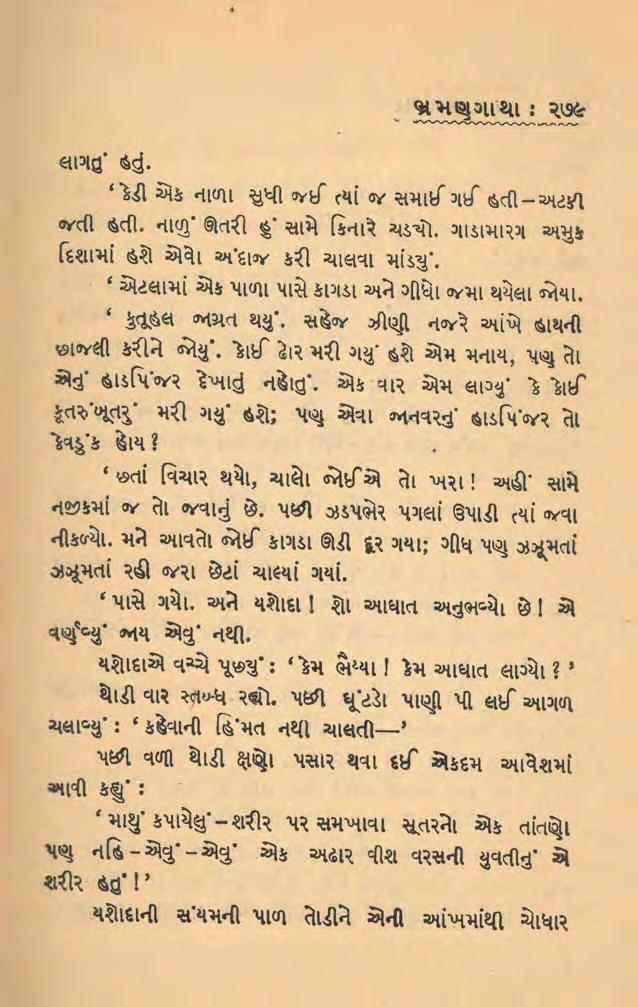 ભ્રમણગાથા : ૨૭૯
લાગતું હતું.
‘ કેડી એક નાળા સુધી જઈ ત્યાં જ સમાઈ ગઈ હતી – અટકી
જતી હતી. નાળું ઊતરી હું સામે કિનારે ચડ્યો. ગાડામારગ અમુક
દિશામાં હશે એવો અંદાજ કરી ચાલવા માંડ્યું.
‘ એટલામાં એક પાળા પાસે કાગડા અને ગીધો જમા થયેલા જોયા.
‘ કુતૂહલ જાગ્રત થયું. સહેજ ઝીણી નજરે આંખે હાથની
છાજલી કરીને જોયું. કોઈ ઢોર મરી ગયું હશે એમ મનાય, પણ તો
એનું હાડપિંજર દેખાતું નહોતું. એક વાર એમ લાગ્યું કે કોઈ
કૂતરુંબૂતરું મરી ગયું હશે; પણ એવા જાનવરનું હાડપિંજર તો
કેવડુંક હોય ?
‘ છતાં વિચાર થયો, ચાલો જોઈએ તો ખરા ! અહીં સામે
નજીકમાં જ તો જવાનું છે. પછી ઝડપભેર પગલાં ઉપાડી ત્યાં જવા
નીકળ્યો. મને આવતો જોઈ કાગડા ઊડી દૂર ગયા; ગીધ પણ ઝઝૂમતાં
ઝઝૂમતાં રહી જરા છેટાં ચાલ્યાં ગયાં.
‘ પાસે ગયો. અને યશોદા ! શો આઘાત અનુભવ્યો છે ! એ
વર્ણવ્યું જાય એવું નથી.
યશોદાએ વચ્ચે પૂછ્યું : ‘ કેમ ભૈય્યા ! કેમ આઘાત લાગ્યો ? ’
થોડી વાર સ્તબ્ધ રહ્યો. પછી ઘૂંટડો પાણી પી લઈ આગળ
ચલાવ્યું : ‘ કહેવાની હિંમત નથી ચાલતી—’
પછી વળી થોડી ક્ષણો પસાર થવા દઈ એકદમ આવેશમાં
આવી કહ્યું :
‘ માથું કપાયેલું – શરીર પર સમખાવા સૂતરનો એક તાંતણો
પણ નહિ – એવું – એવું એક અઢાર વીશ વરસની યુવતીનું એ
શરીર હતું ! ’
યશોદાની સંયમની પાળ તોડીને એની આંખમાંથી ચોધાર